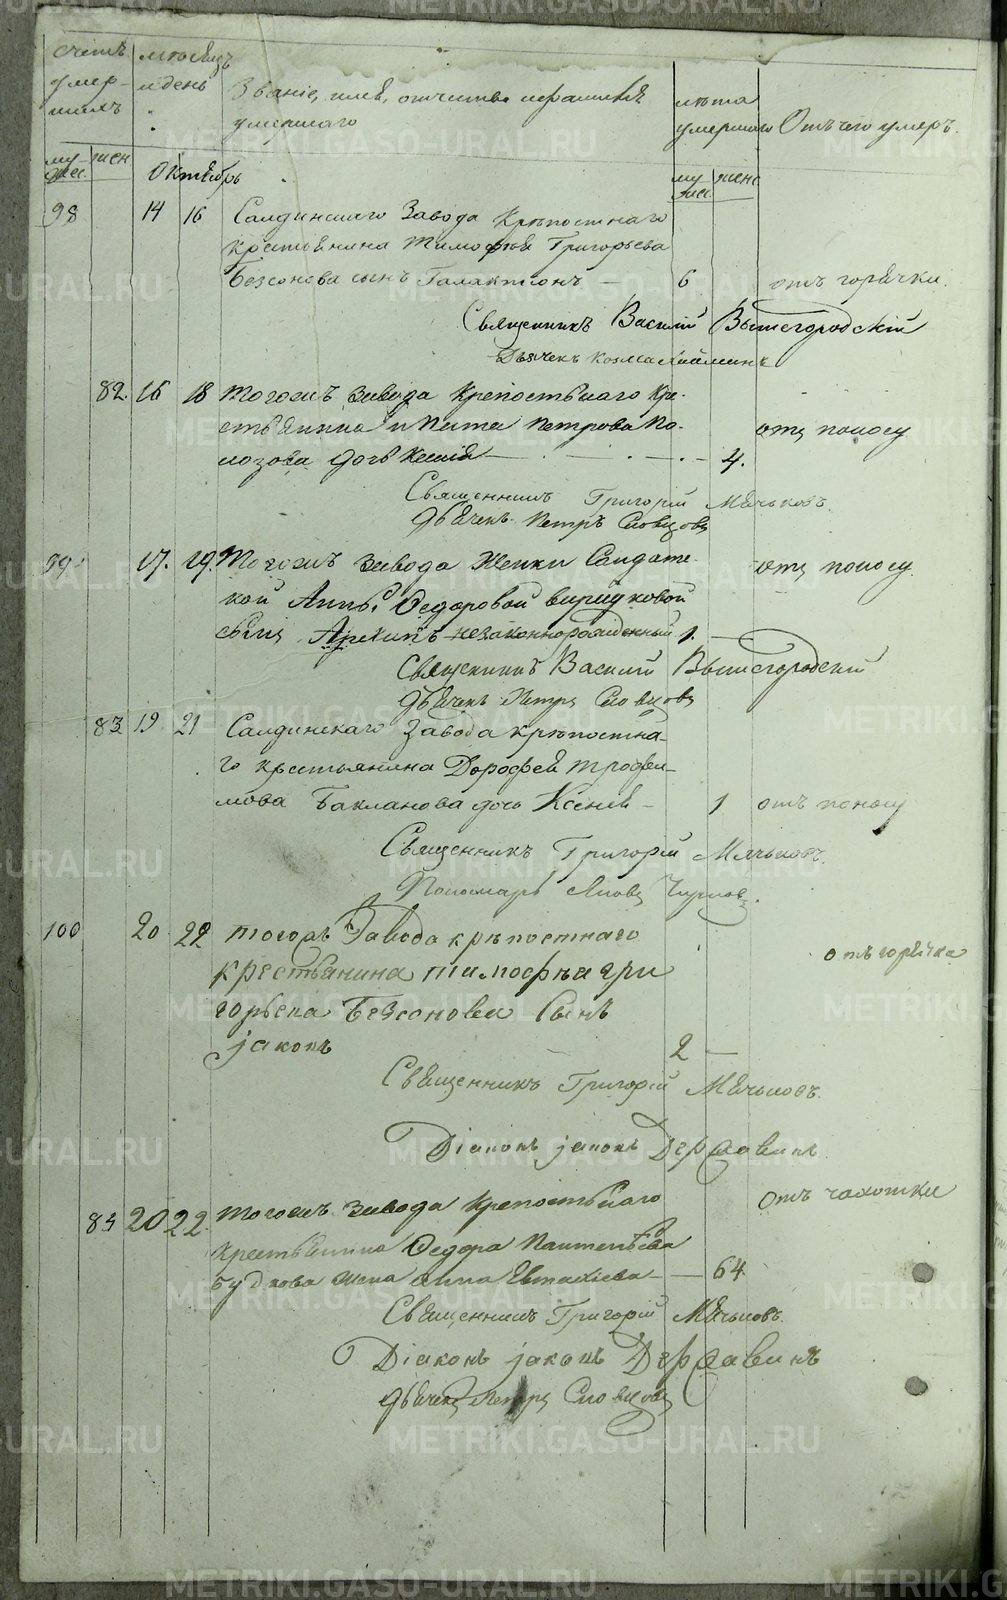 счетъ умер- шихъ
мѣсяцъ и день
Званіе, имя, отчество и фамилія умершаго
лѣта умершаго
Отъ чего умеръ.
муж. жен
Октябрь
муж. жен
98 14 16 Салдинскаго Завода Крѣпостнаго
крестьянина Тимофея Григорьева
Безсонова сынъ Галактіонъ — 6 отъ горячки.
Священникъ Василій Вышегородскій
Дьячекъ Козма
82. 16 18 Тогожъ завода Крепостьнаго Кре-
стьянина Петрова По-
лозова дочь Ксенія — 4. отъ поносу
Священникъ Григорій Мячьковъ.
Дьячекъ Петръ Словцовъ
99 17. 19. Тогожъ завода Женки Салдатс-
кой Анны Федоровой отъ поносу.
сынъ незаконнорожденный 1. —
Священникъ Василій Вышегородскій
Дьячекъ Петръ Словцовъ
83 19 21 Салдинскаго Завода крѣпостна-
го крестьянина Дорофея Трофи-
мова Бакланова дочь Ксенія — 1 отъ поносу
Священникъ Григорій Мячьковъ.
Пономарь Яковъ
100 20 22 тогожъ Завода крѣпостнаго
крестьянина тимофѣя гри отъ горячки
горьева Безсонова Сынъ
јаковъ 2 —
Священникъ Григорій Мячьковъ.
Діаконъ јаковъ Державинъ
84 20 22. Тогожъ завода Крепостьнаго отъ чахотки
Крестьянина Федора Пантелѣева
Будкова жена Анна Евтихіева — — 64
Священникъ Григорій Мячьковъ.
Діаконъ јаковъ Державинъ
Дьячекъ Петръ Словцовъ
METRIKI.GASO-URAL.RU